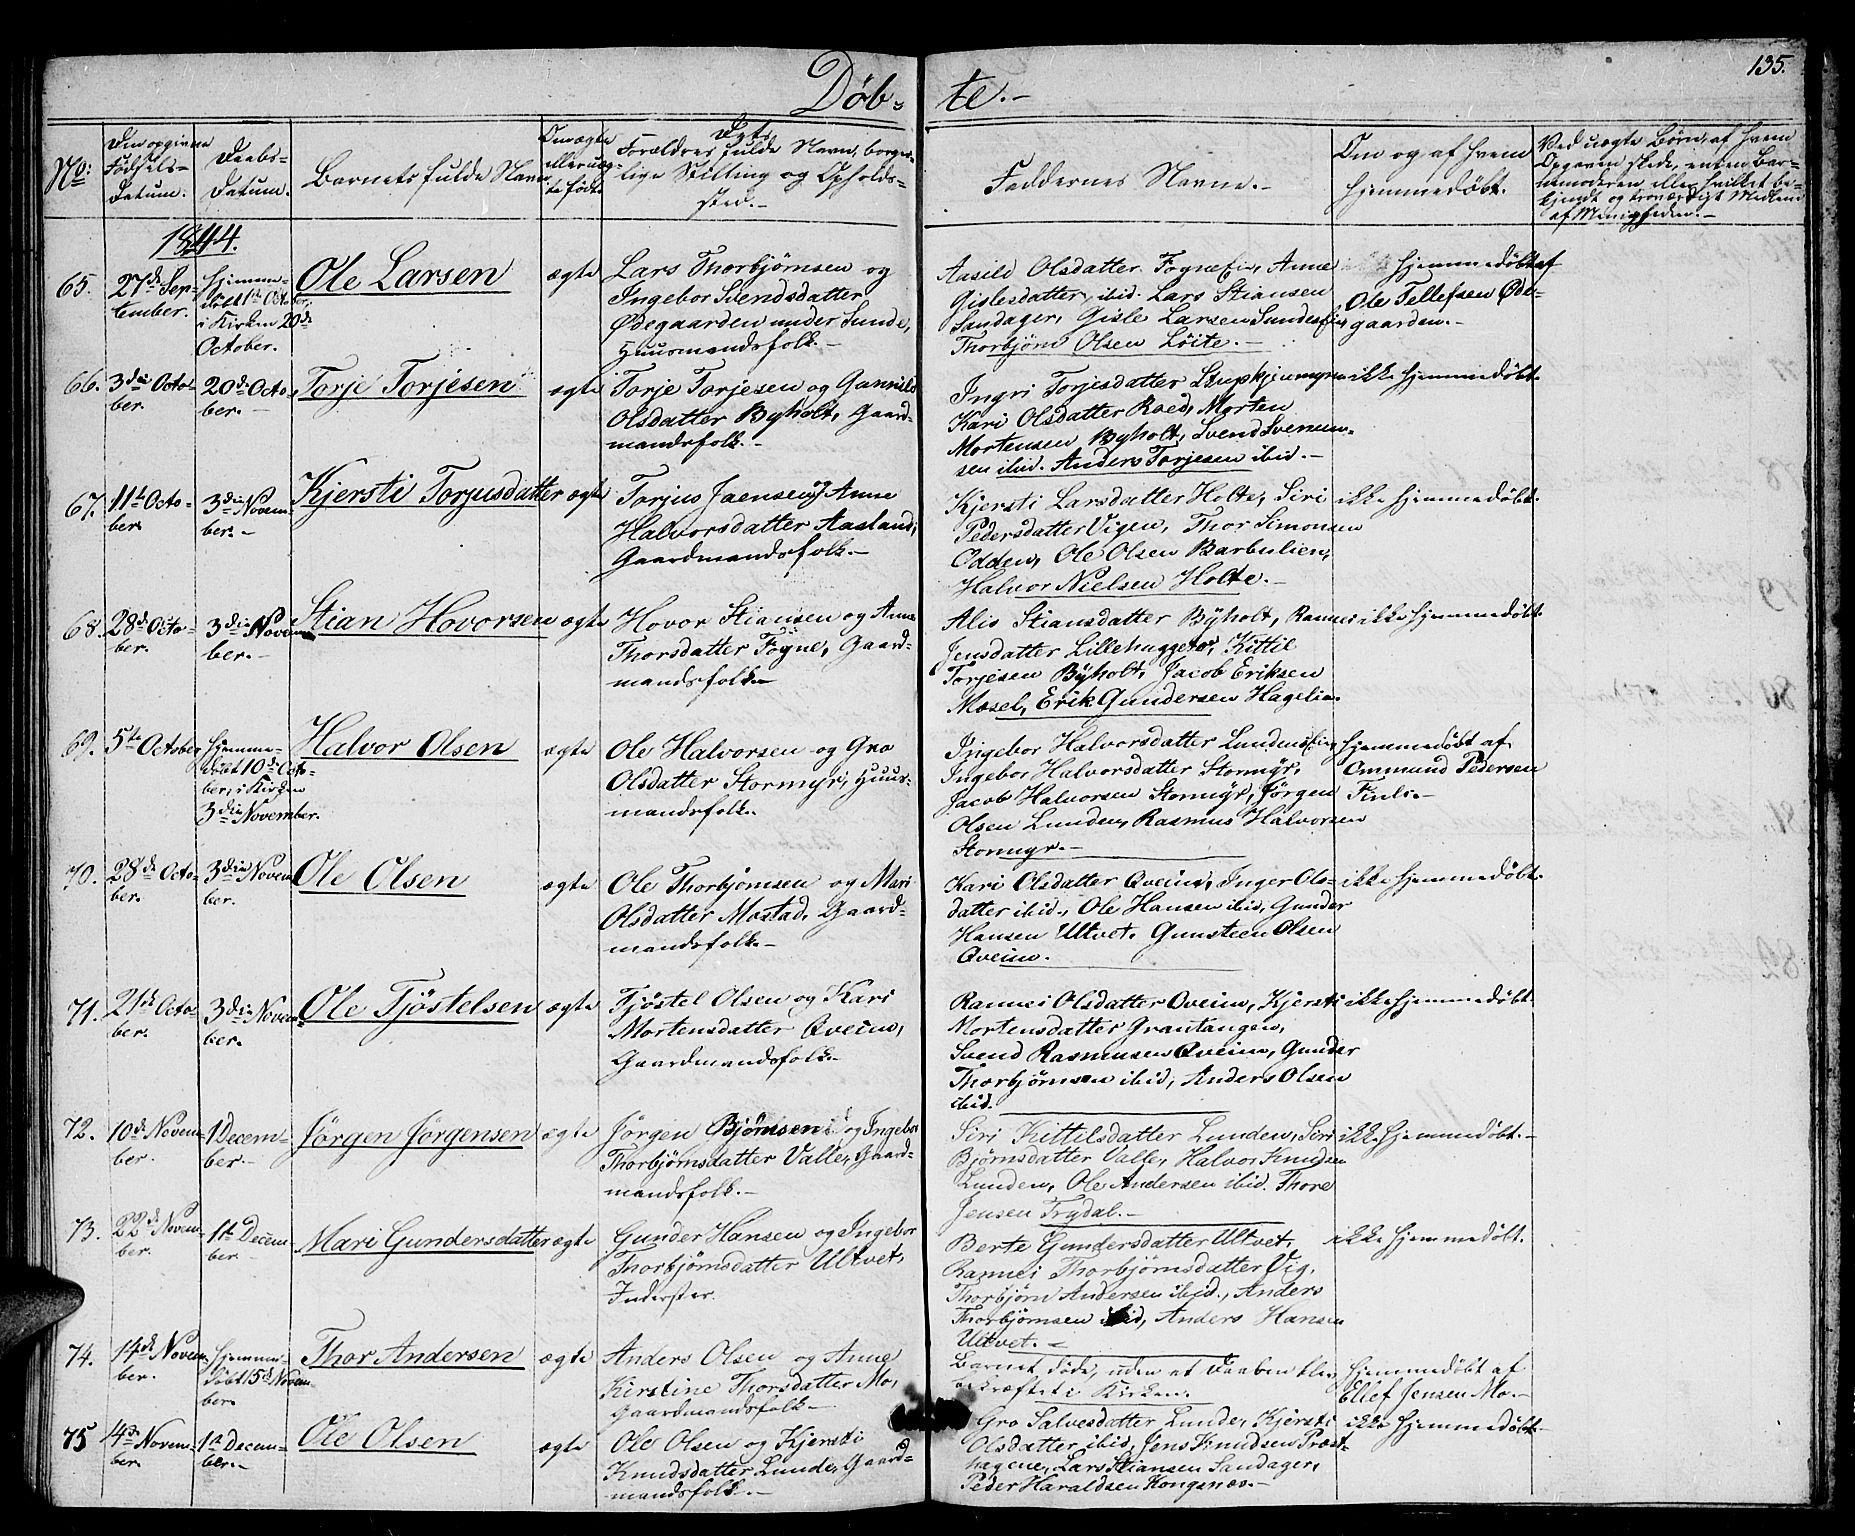 135.
Döb-
te.-
No:
Den opgivne
Födsels-
Datum.
Daabs-
Datum.
Barnets fulde Navn
Om ægte
eller uæg-
te födt.
Dets
Forældres fulde Navn, borger-
lige Stilling og Opholds-
sted.-
Faddernes Navne.-
Om og af hvem
hjemmedöbt.
Ved uægte Börn, af hvem
Opgaven skede, enten Bar-
nemoderen eller hvilket be-
kjendt og troværdigt Medlem
af Menigheden.-
1844.
65.
27de Sep-
tember.
Hjemme-
döbt 1ste October,
i Kirken 20de
October.
Ole Larsen
ægte
Lars Thorbjörnsen og
Ingebor Svendsdatter
Ödegaarden under Sunde,
Huusmandsfolk.-
Aasild Olsdatter Fogne, Anne
Gislesdatter, ibid. Lars Stiansen
Sandager, Gisle Larsen Sunde
Thorbjörn Olsen Löite.-
Hjemmedöbt af
Ole Tellefsen Öde-
gaarden.-
66.
3die Octo-
ber.
20de Octo-
ber.-
Torje Torjesen
ægte
Torje Torjesen og Gunnild
Olsdatter Byholt, Gaard-
mandsfolk.-
Ingri Torjisdatter
Kari Olsdatter Roed, Morten
Mortensen Byholt, Svend Svenum-
sen ibid. Anders Torjesen ibid.-
ikke hjemmedöbt.
67.
11te Octo-
ber
3die Novem-
ber.-
Kjersti Torjusdatter
ægte
Torjus Jaensen og Anne
Halvorsdatter Aasland,
Gaardmandsfolk.-
Kjersti Larsdatter Holte, Siri
Pedersdatter Vigen, Thor Simonsen
Odden, Ole Olsen Barbulien,
Halvor Nielsen Holte.-
ikke hjemmedöbt.
68.
28de Octo-
ber.
3die Novem-
ber.-
Stian Hovorsen
ægte
Hovor Stiansen og Anne
Thorsdatter Fogne, Gaard-
mandsfolk.-
Alis Stiansdatter Byholt, Rannei
Jensdatter Lillehuggero, Kittil
Torjesen Byholt, Jacob Eriksen
Mosel, Erik Gundersen Hagelia.
ikke hjemmedöbt.
69.
5te October
Hjemme-
döbt 10de Octo-
ber, i Kirken
3die November.
Halvor Olsen
ægte
Ole Halvorsen og Gro
Olsdatter Stormyr, Huus-
mandsfolk.
Ingebor Halvorsdatter Lunden
Ingebor Halvorsdatter Stormyr,
Jacob Halvorsen Stormyr, Jörgen
Olsen Lunden, Rasmus Halvorsen
Stormyr.-
hjemmedöbt af
Ommund Pedersen
70.
28de Octo-
ber.
3die Novem
ber.
Ole Olsen
ægte
Ole Thorbjörnsen og Mari
Olsdatter Mostad, Gaard-
mandsfolk.-
Kari Olsdatter Qveim, Inger Ols-
datter ibid., Ole Hansen ibid, Gunder
Hansen Ultvet. Gunsteen Olsen
Qveim.
ikke hjemmedöbt.
71.
21de Octo-
ber.
3die Novem-
ber.
Ole Tjöstelsen
ægte
Tjöstel Olsen og Kari
Mortensdatter Qveim,
Gaardmandsfolk.-
Rannei Olsdatter Qveim, Kjersti
Mortensdatter Grautangen,
Svend Rasmusen Qveim, Gunder
Thorbjörnsen ibid, Anders Olsen
ibid.
ikke hjemmedöbt.
72.
10de Novem-
ber.
1 Decem-
ber.-
Jörgen Jörgensen
ægte
Jörgen Björnsen og Ingebor
Thorbjörnsdatter Valle, Gaard-
mandsfolk.-
Siri Kittilsdatter Lunden, Siri
Björnsdatter Valle, Halvor Knudsen
Lunden, Ole Andersen ibid. Thore
Jensen Trydal.-
ikke hjemmedöbt.-
73.
22de Novem-
ber.
1te Decem-
ber
Mari Gundersdatter
ægte
Gunder Hansen og Ingebor
Thorbjörnsdatter Ultvet,
Inderster.
Berte Gundersdatter Ultvet,
Rannei Thorbjörnsdatter Vig,
Thorbjörn Andersen ibid., Anders
Thorbjörnsen ibid, Anders Hansen
Ultvet.-
ikke hjemmedöbt.
74.
14de Novem-
ber.
Hjemme-
döbt 15de Novem-
ber.
Thor Andersen
ægte
Anders Olsen og Anne
Kirstine Thorsdatter Mo,
Gaardmandsfolk.-
Barnet döde, uden at Daaben blev
bekræftet i Kirken.
Hjemmedöbt af
Ellef Jensen Mo.-
75
4de Novem-
ber.
1te Decem-
ber.-
Ole Olsen
ægte
Ole Olsen og Kjersti
Knudsdatter Lunde, Gaard-
mandsfolk.-
Gro Salvesdatter Lunde, Kjersti
Olsdatter ibid, Jens Knudsen Præst-
hagene, Lars Stiansen Sandager,
Peder Haraldsen Kongsnes.-
ikke hjemmedöbt.-